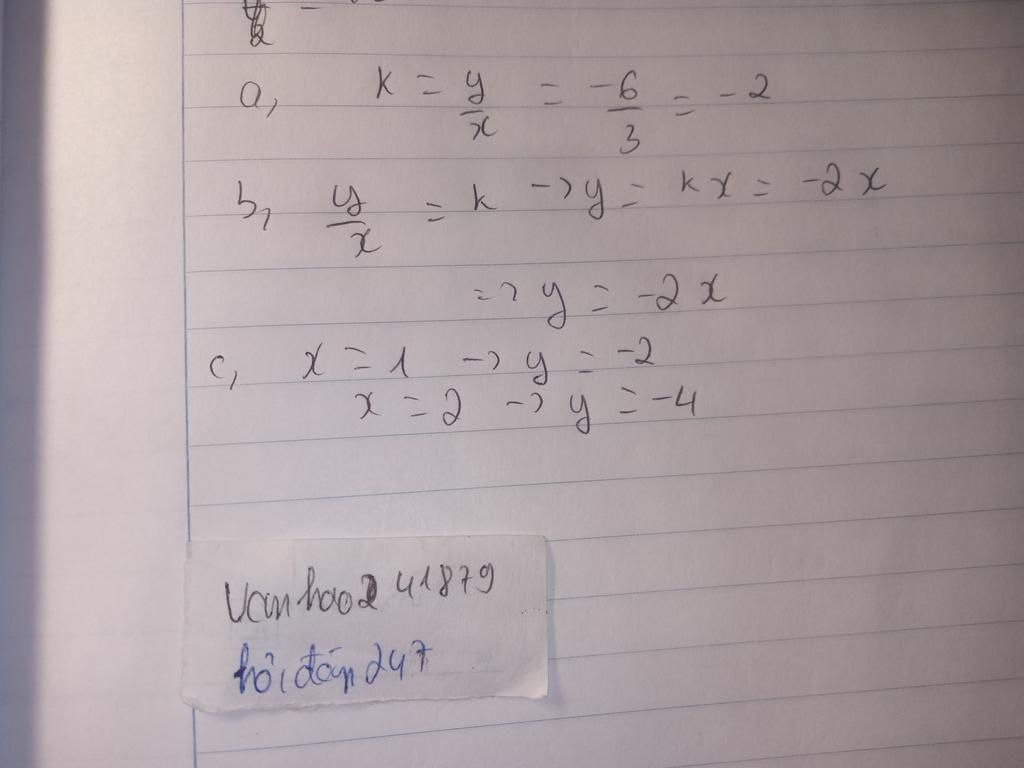 a, k = y/x = -6/3 = -2
b, y/x = k -> y = kx = -2x
=> y = -2x
c, x = 1 -> y = -2
x = 2 -> y = -4
vanhao241879
hỏi đáp 247